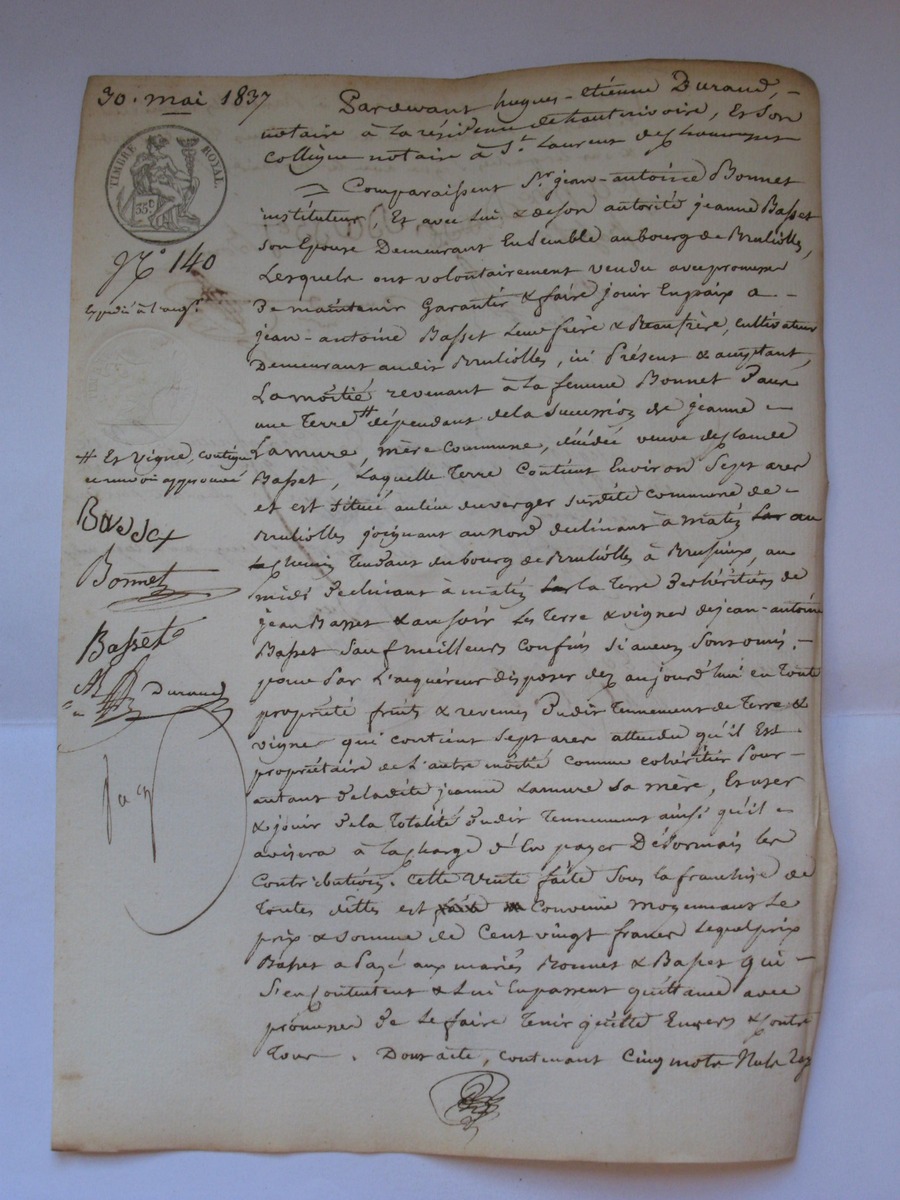 30. mai 1837
TIMBRE ROYAL.
35c.
N.° 140
Expédié à l'acq.r
# Et vigne, contigue
ce renvoi approuvé
Basset
Bonnet
Basset
Durand
Pardevant hugues-étienne Durand, -
notaire à la résidence de hauterivoire, Et son
Collègue notaire à St. Laurent de Chamousset
Comparaissent Sr. jean-antoine Bonnet
instituteur, Et avec Lui & de son autorité jeanne Basset
son Epouse Demeurant Ensemble au bourg de Brullioles,
Lesquels ont volontairement vendu avec promesse
De maintenir Garantir & faire jouir En paix a -
jean-antoine Basset Leur frère & Beaufrère, cultivateur
Demeurant audit Brullioles, ici Présent & acceptant,
La moitié revenant à la femme Bonnet Dans
une Terre # dépendant de la succession de jeanne -
Lamure, mère commune, décédée veuve de Claude
Basset, Laquelle Terre Contient Environ Sept ares
et est située au lieu du verger susdite commune de -
Brullioles joignant au nord déclinant à matin au
chemin Tendant du bourg de Brullioles à Brussieux, au
midi Déclinant à matin la Terre Des héritiers de
jean Basset & au soir Les Terre & vigne de jean-antoine
Basset Sauf meilleurs confins si aucuns sont omis, -
pour Par L'acquéreur disposer dez aujourd'hui en Toute
propriété fruits & revenus Dudit Tennement de Terre &
vigne qui contient Sept ares attendu qu'il Est
propriétaire de L'autre moitié comme cohéritier Pour
autant De ladite jeanne Lamure Sa mère, En user
& jouir De la Totalité Dudit Tennement ainsi qu'il -
avisera à la charge d'En payer Désormais les
Contributions. Cette vente faite Sous la franchise de
Toutes dettes est Convenue moyennant Le
prix & Somme de Cent vingt francs Lequel prix
Basset a Payé aux mariés Bonnet & Basset qui -
S'en Contentent & Lui En passent quittance avec
promesse De Le faire Tenir quitte Envers & Contre
Tous. Dont acte, contenant Cinq mots Nuls